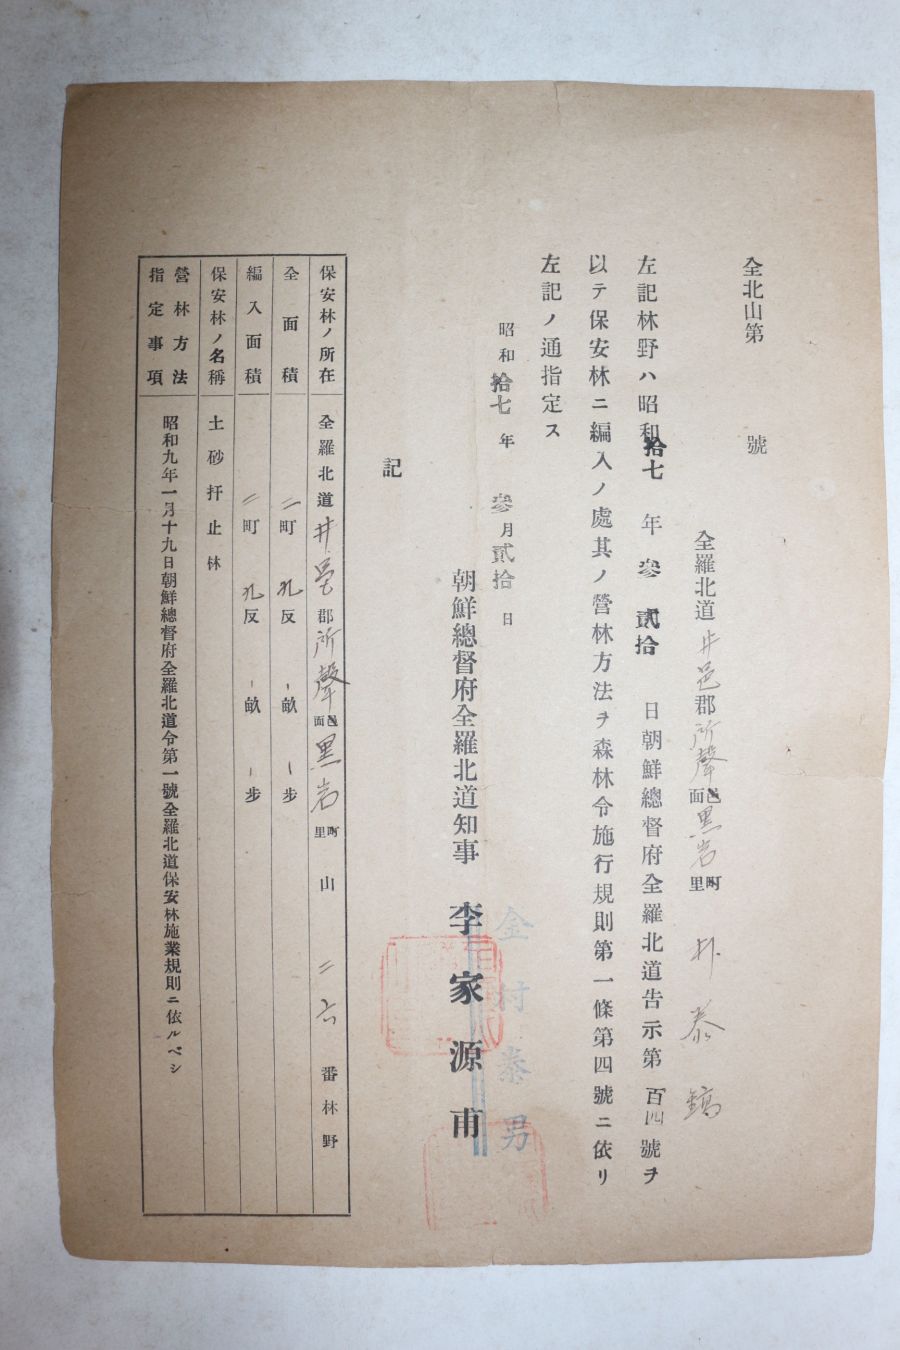 全北山第　　　號
全羅北道井邑郡所聲邑面黑岩町里　朴泰鎬
左記林野ハ昭和拾七年參貳拾日朝鮮總督府全羅北道告示第百四號ヲ
以テ保安林ニ編入ノ處其ノ營林方法ヲ森林令施行規則第一條第四號ニ依リ
左記ノ通指定ス
昭和拾七年參月貳拾日
朝鮮總督府全羅北道知事　李家源甫
金村泰男
記
保安林ノ所在　全羅北道井邑郡所聲邑面黑岩町里山二六番林野
全面積　二町九反-畝-步
編入面積　二町九反-畝-步
保安林ノ名稱　土砂扞止林
營林方法
指定事項　昭和九年一月十九日朝鮮總督府全羅北道令第一號全羅北道保安林施業規則ニ依ルベシ